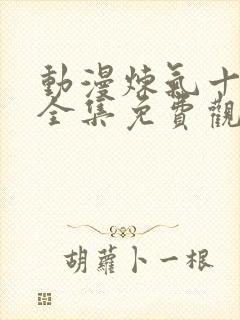 動漫煉氣十
全集免費觀
胡蘿卜一根